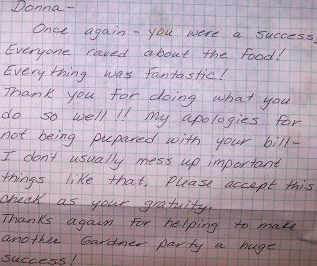 Donna-
Once again - you were a success.
Everyone raved about the food!
Everything was fantastic!
Thank you for doing what you
do so well!! My apologies for
not being prepared with your bill-
I don't usually mess up important
things like that. Please accept this
check as your gratuity.
Thanks again for helping to make
another Gardner party a huge
success!